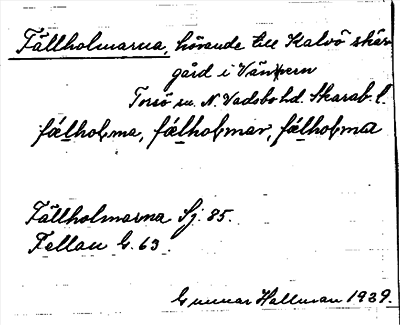 Fällholmarna, hörande till Kalvö skär-
gård i Vänern
Torsö sn. N. Vadsbo hd. Skarab. l.
fælhoļma, fælhoļmar, fælhoļma
Fällholmarna Sj. 85.
Fellan G. 63.
Gunnar Hallman 1939.